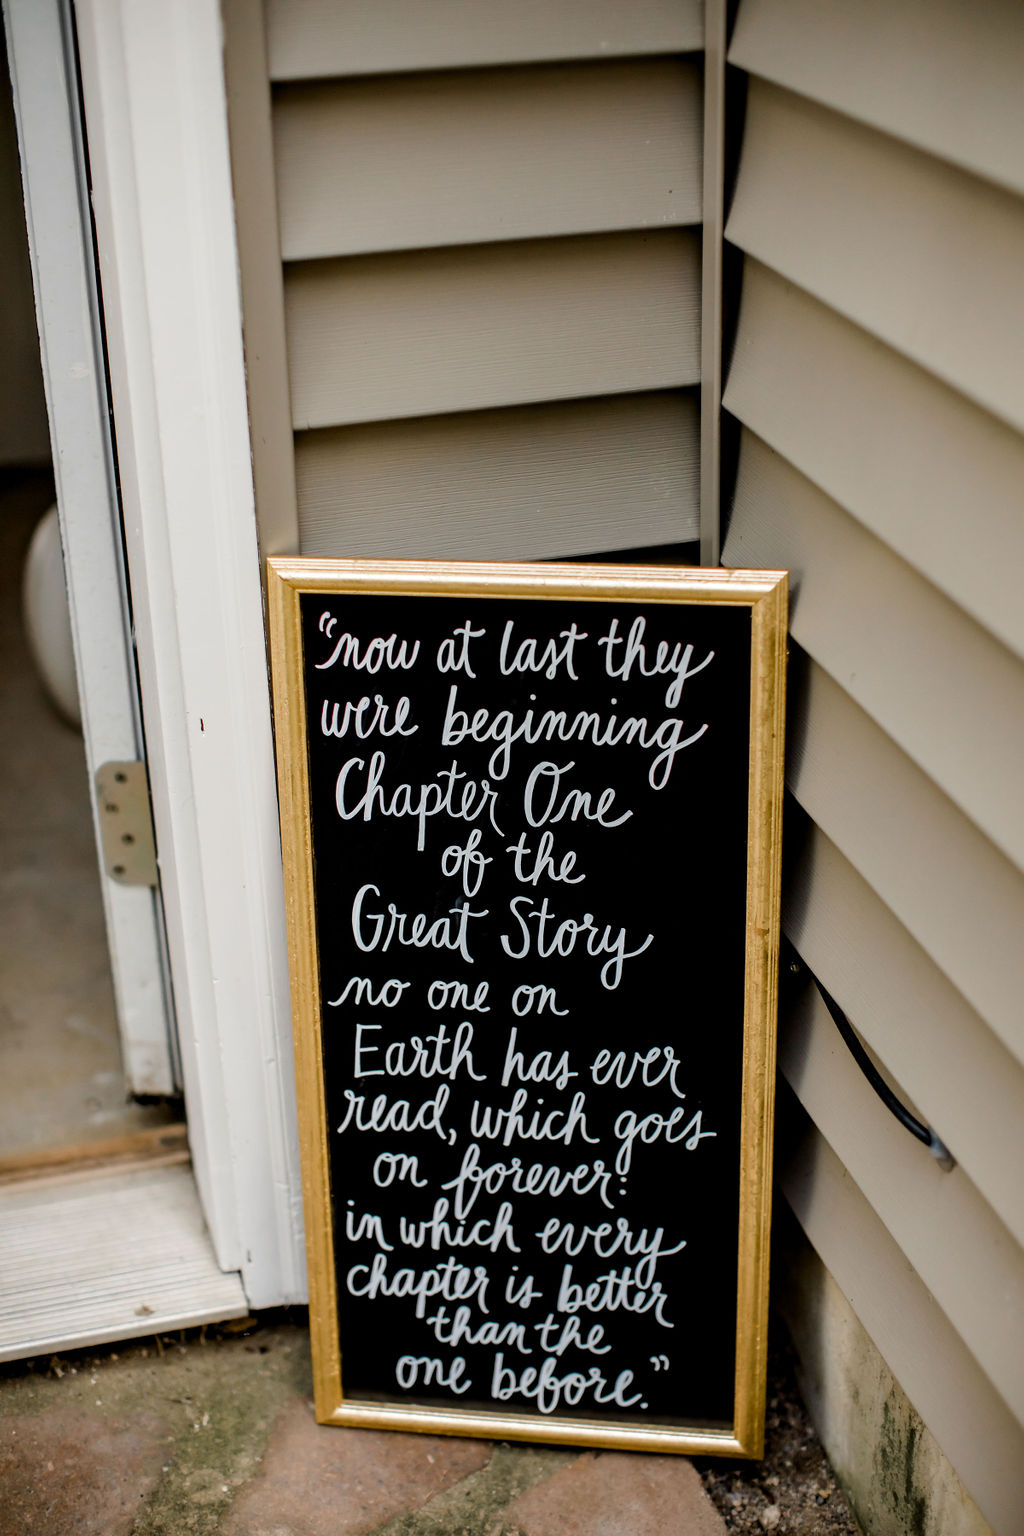 “now at last they
were beginning
Chapter One
of the
Great Story
no one on
Earth has ever
read, which goes
on forever:
in which every
chapter is better
than the
one before.”